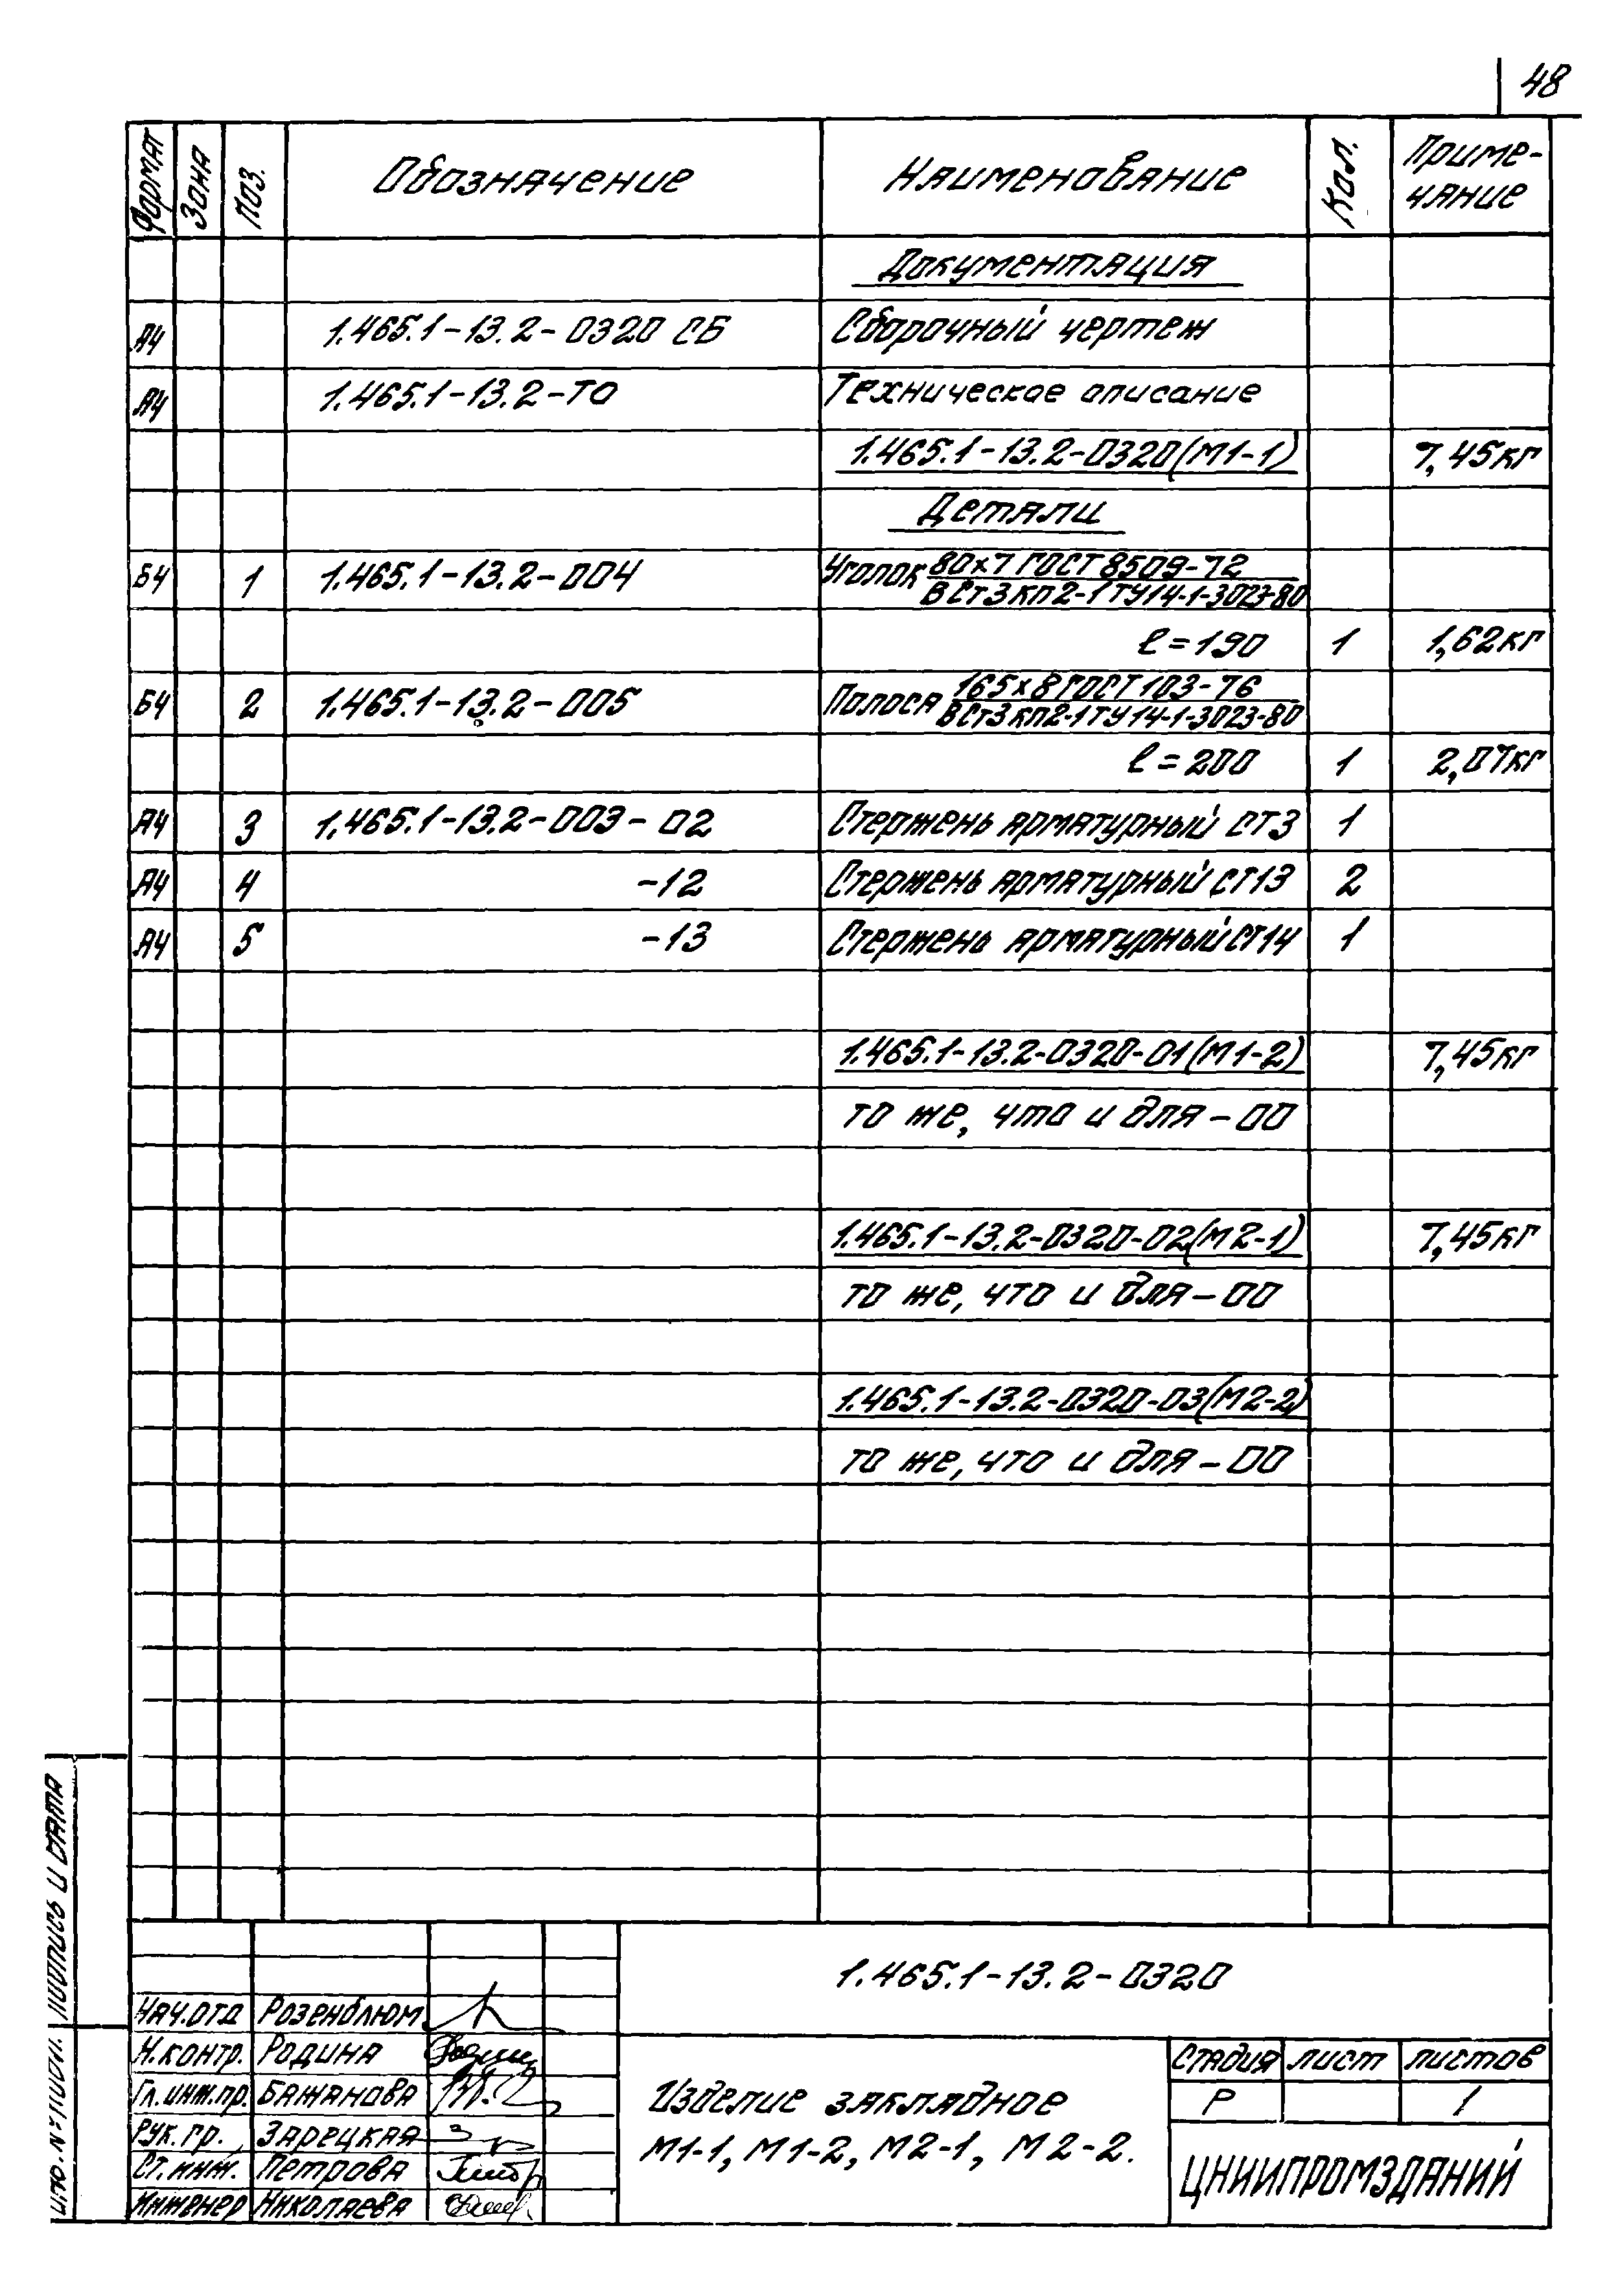 48
Формат Зона Поз. Обозначение Наименование Кол. Приме-
чание
Документация
А4 1.465.1-13.2-0320 СБ Сборочный чертеж
А4 1.465.1-13.2-ТО Техническое описание
1.465.1-13.2-0320(М1-1) 7,45кг
Детали
Б4 1 1.465.1-13.2-004 Уголок 80х7 ГОСТ 8509-72
ВСт3кп2-1ТУ14-1-3023-80
ℓ=190 1 1,62кг
Б4 2 1.465.1-13.2-005 Полоса 165х8 ГОСТ 103-76
ВСт3кп2-1ТУ14-1-3023-80
ℓ=200 1 2,07кг
А4 3 1.465.1-13.2-003-02 Стержень арматурный СТ3 1
А4 4 -12 Стержень арматурный СТ13 2
А4 5 -13 Стержень арматурный СТ14 1
1.465.1-13.2-0320-01(М1-2) 7,45кг
то же, что и для-00
1.465.1-13.2-0320-02(М2-1) 7,45кг
то же, что и для-00
1.465.1-13.2-0320-03(М2-2)
то же, что и для-00
Подпись и дата
Инв.№подл.
1.465.1-13.2-0320
Нач.отд Розенблюм
Н.контр. Родина
Гл.инж.пр. Бажанова
Рук.гр. Зарецкая
Ст.инж. Петрова
Инженер Николаева
Изделие закладное
М1-1, М1-2, М2-1, М2-2.
Стадия лист листов
Р 1
ЦНИИПРОМЗДАНИЙ